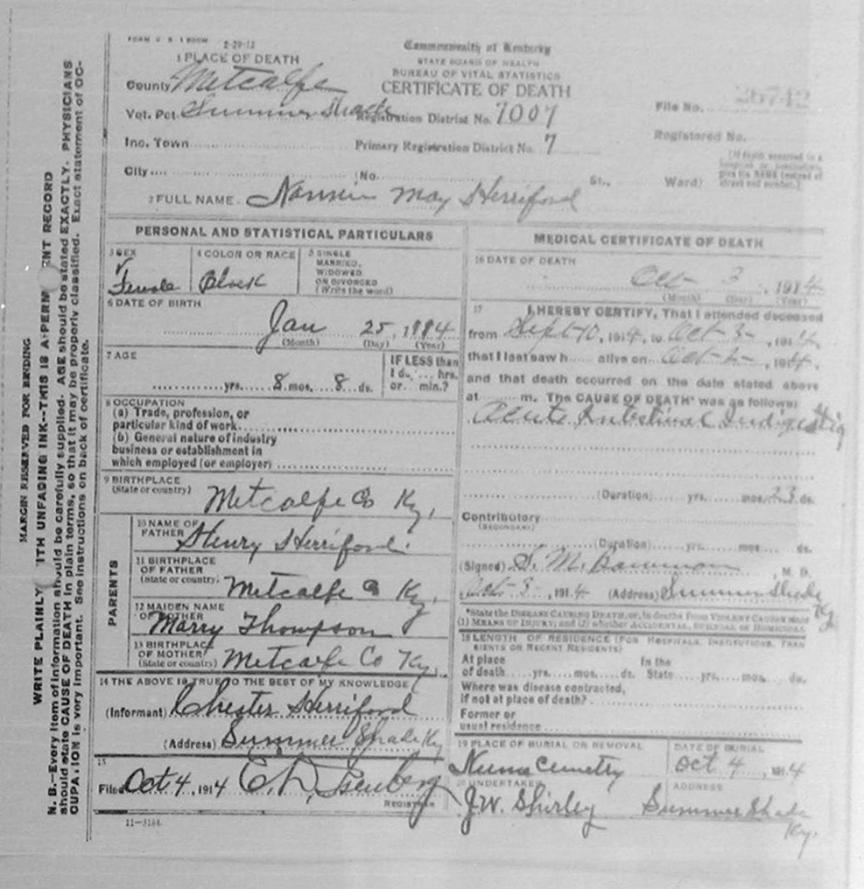 FORM V. S. 1 2-29-12
Commonwealth of Kentucky
STATE BOARD OF HEALTH
BUREAU OF VITAL STATISTICS
CERTIFICATE OF DEATH
1 PLACE OF DEATH
County Metcalfe
Vot. Pct. Summer Shade Registration District No. 7007 File No. 26742
Inc. Town Primary Registration District No. 7 Registered No.
City No. St., Ward)
2 FULL NAME Nannie May Herriford
PERSONAL AND STATISTICAL PARTICULARS
3 SEX Female
4 COLOR OR RACE Black
5 SINGLE
MARRIED,
WIDOWED
OR DIVORCED
(Write the word)
6 DATE OF BIRTH
Jan 25, 1914
(Month) (Day) (Year)
7 AGE
yrs. 8 mos. 8 ds.
IF LESS than
1 d. hrs.
or min.?
8 OCCUPATION
(a) Trade, profession, or
particular kind of work
(b) General nature of industry
business or establishment in
which employed (or employer)
9 BIRTHPLACE
(State or country) Metcalfe Co Ky.
PARENTS
10 NAME OF
FATHER Henry Herriford
11 BIRTHPLACE
OF FATHER
(State or country) Metcalfe Co Ky.
12 MAIDEN NAME
OF MOTHER Marry Thompson
13 BIRTHPLACE
OF MOTHER
(State or country) Metcalfe Co Ky.
14 THE ABOVE IS TRUE TO THE BEST OF MY KNOWLEDGE
(Informant) Chester Herriford
(Address) Summer Shade Ky
15
Filed Oct 4, 1914 C. N. Isenberg
REGISTRAR
11-3184
MEDICAL CERTIFICATE OF DEATH
16 DATE OF DEATH
Oct 3, 1914
(Month) (Day) (Year)
17 I HEREBY CERTIFY, That I attended deceased
from Sept 10, 1914, to Oct 3, 1914,
that I last saw h alive on Oct 2, 1914,
and that death occurred on the date stated above
at m. The CAUSE OF DEATH* was as follows:
Acute Intestinal Indigestion
(Duration) yrs. mos. 23 ds.
Contributory
(SECONDARY)
(Duration) yrs. mos. ds.
(Signed) S. M. Bowman, M. D.
Oct 3, 1914 (Address) Summer Shade Ky
*State the DISEASE CAUSING DEATH, or, in deaths from VIOLENT CAUSES state
(1) MEANS OF INJURY; and (2) whether ACCIDENTAL, SUICIDAL OR HOMICIDAL
18 LENGTH OF RESIDENCE (FOR HOSPITALS, INSTITUTIONS, TRANSIENTS OR RECENT RESIDENTS)
At place In the
of death yrs. mos. ds. State yrs. mos. ds.
Where was disease contracted,
if not at place of death?
Former or
usual residence
19 PLACE OF BURIAL OR REMOVAL DATE OF BURIAL
Cemetry Oct 4, 1914
20 UNDERTAKER ADDRESS
J.W. Shirley Summer Shade
Ky.
MARGIN RESERVED FOR BINDING
WRITE PLAINLY ITH UNFADING INK--THIS IS A PERM ENT RECORD
N. B.--Every item of information should be carefully supplied. AGE should be stated EXACTLY. PHYSICIANS
should state CAUSE OF DEATH in plain terms, so that it may be properly classified. Exact statement of OC-
CUPA ION is very important. See instructions on back of certificate.